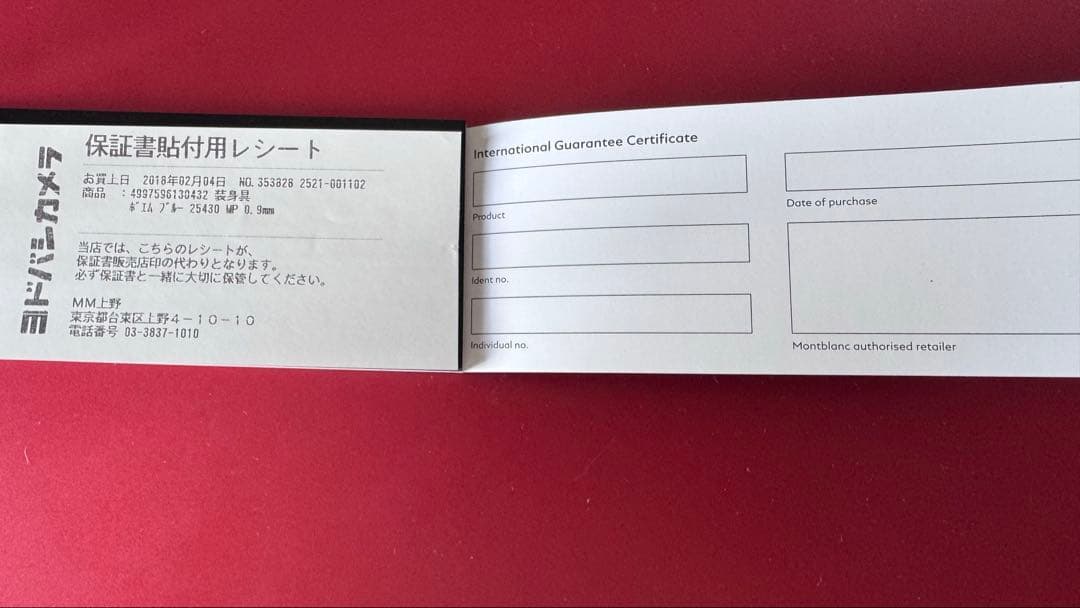 ヨドバシカメラ
保証書貼付用レシート
お買上日 2018年02月04日 NO.353828 2521-001102
商品 :4997596130432 装身具
ﾎﾞｴﾑ ﾌﾞﾙｰ 25430 WP 0.9mm
当店では、こちらのレシートが、
保証書販売店印の代わりとなります。
必ず保証書と一緒に大切に保管してください。
MM上野
東京都台東区上野4-10-10
電話番号 03-3837-1010
International Guarantee Certificate
Product
Ident no.
Individual no.
Date of purchase
Montblanc authorised retailer